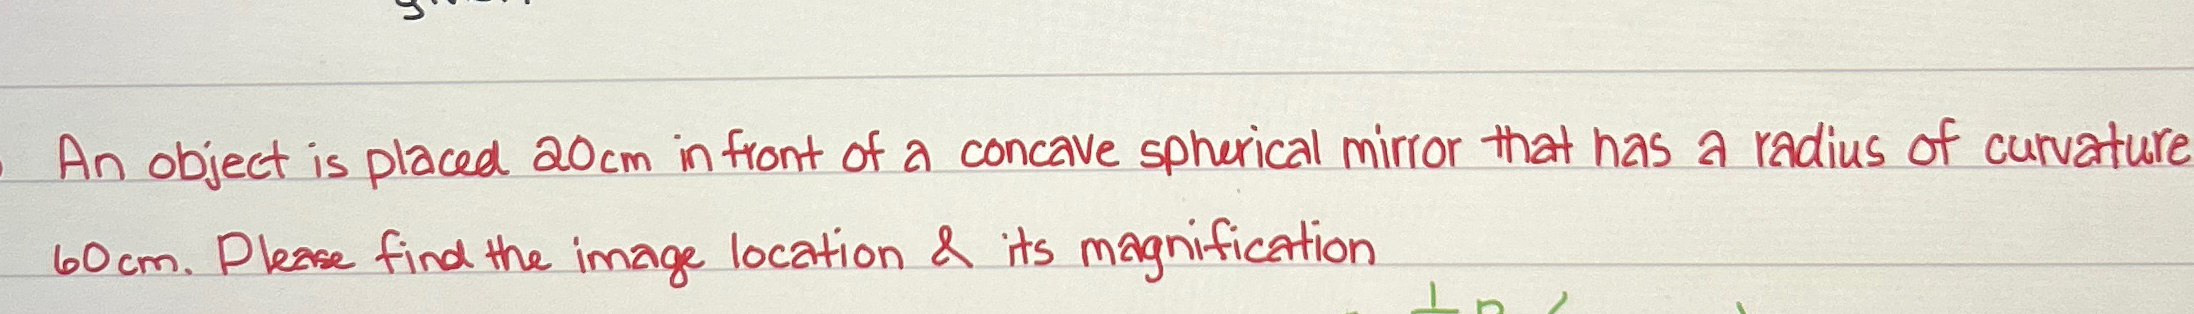 An object is placed 20cm in front of a concave spherical mirror that has a radius of curvature
60cm. Please find the image location & its magnification